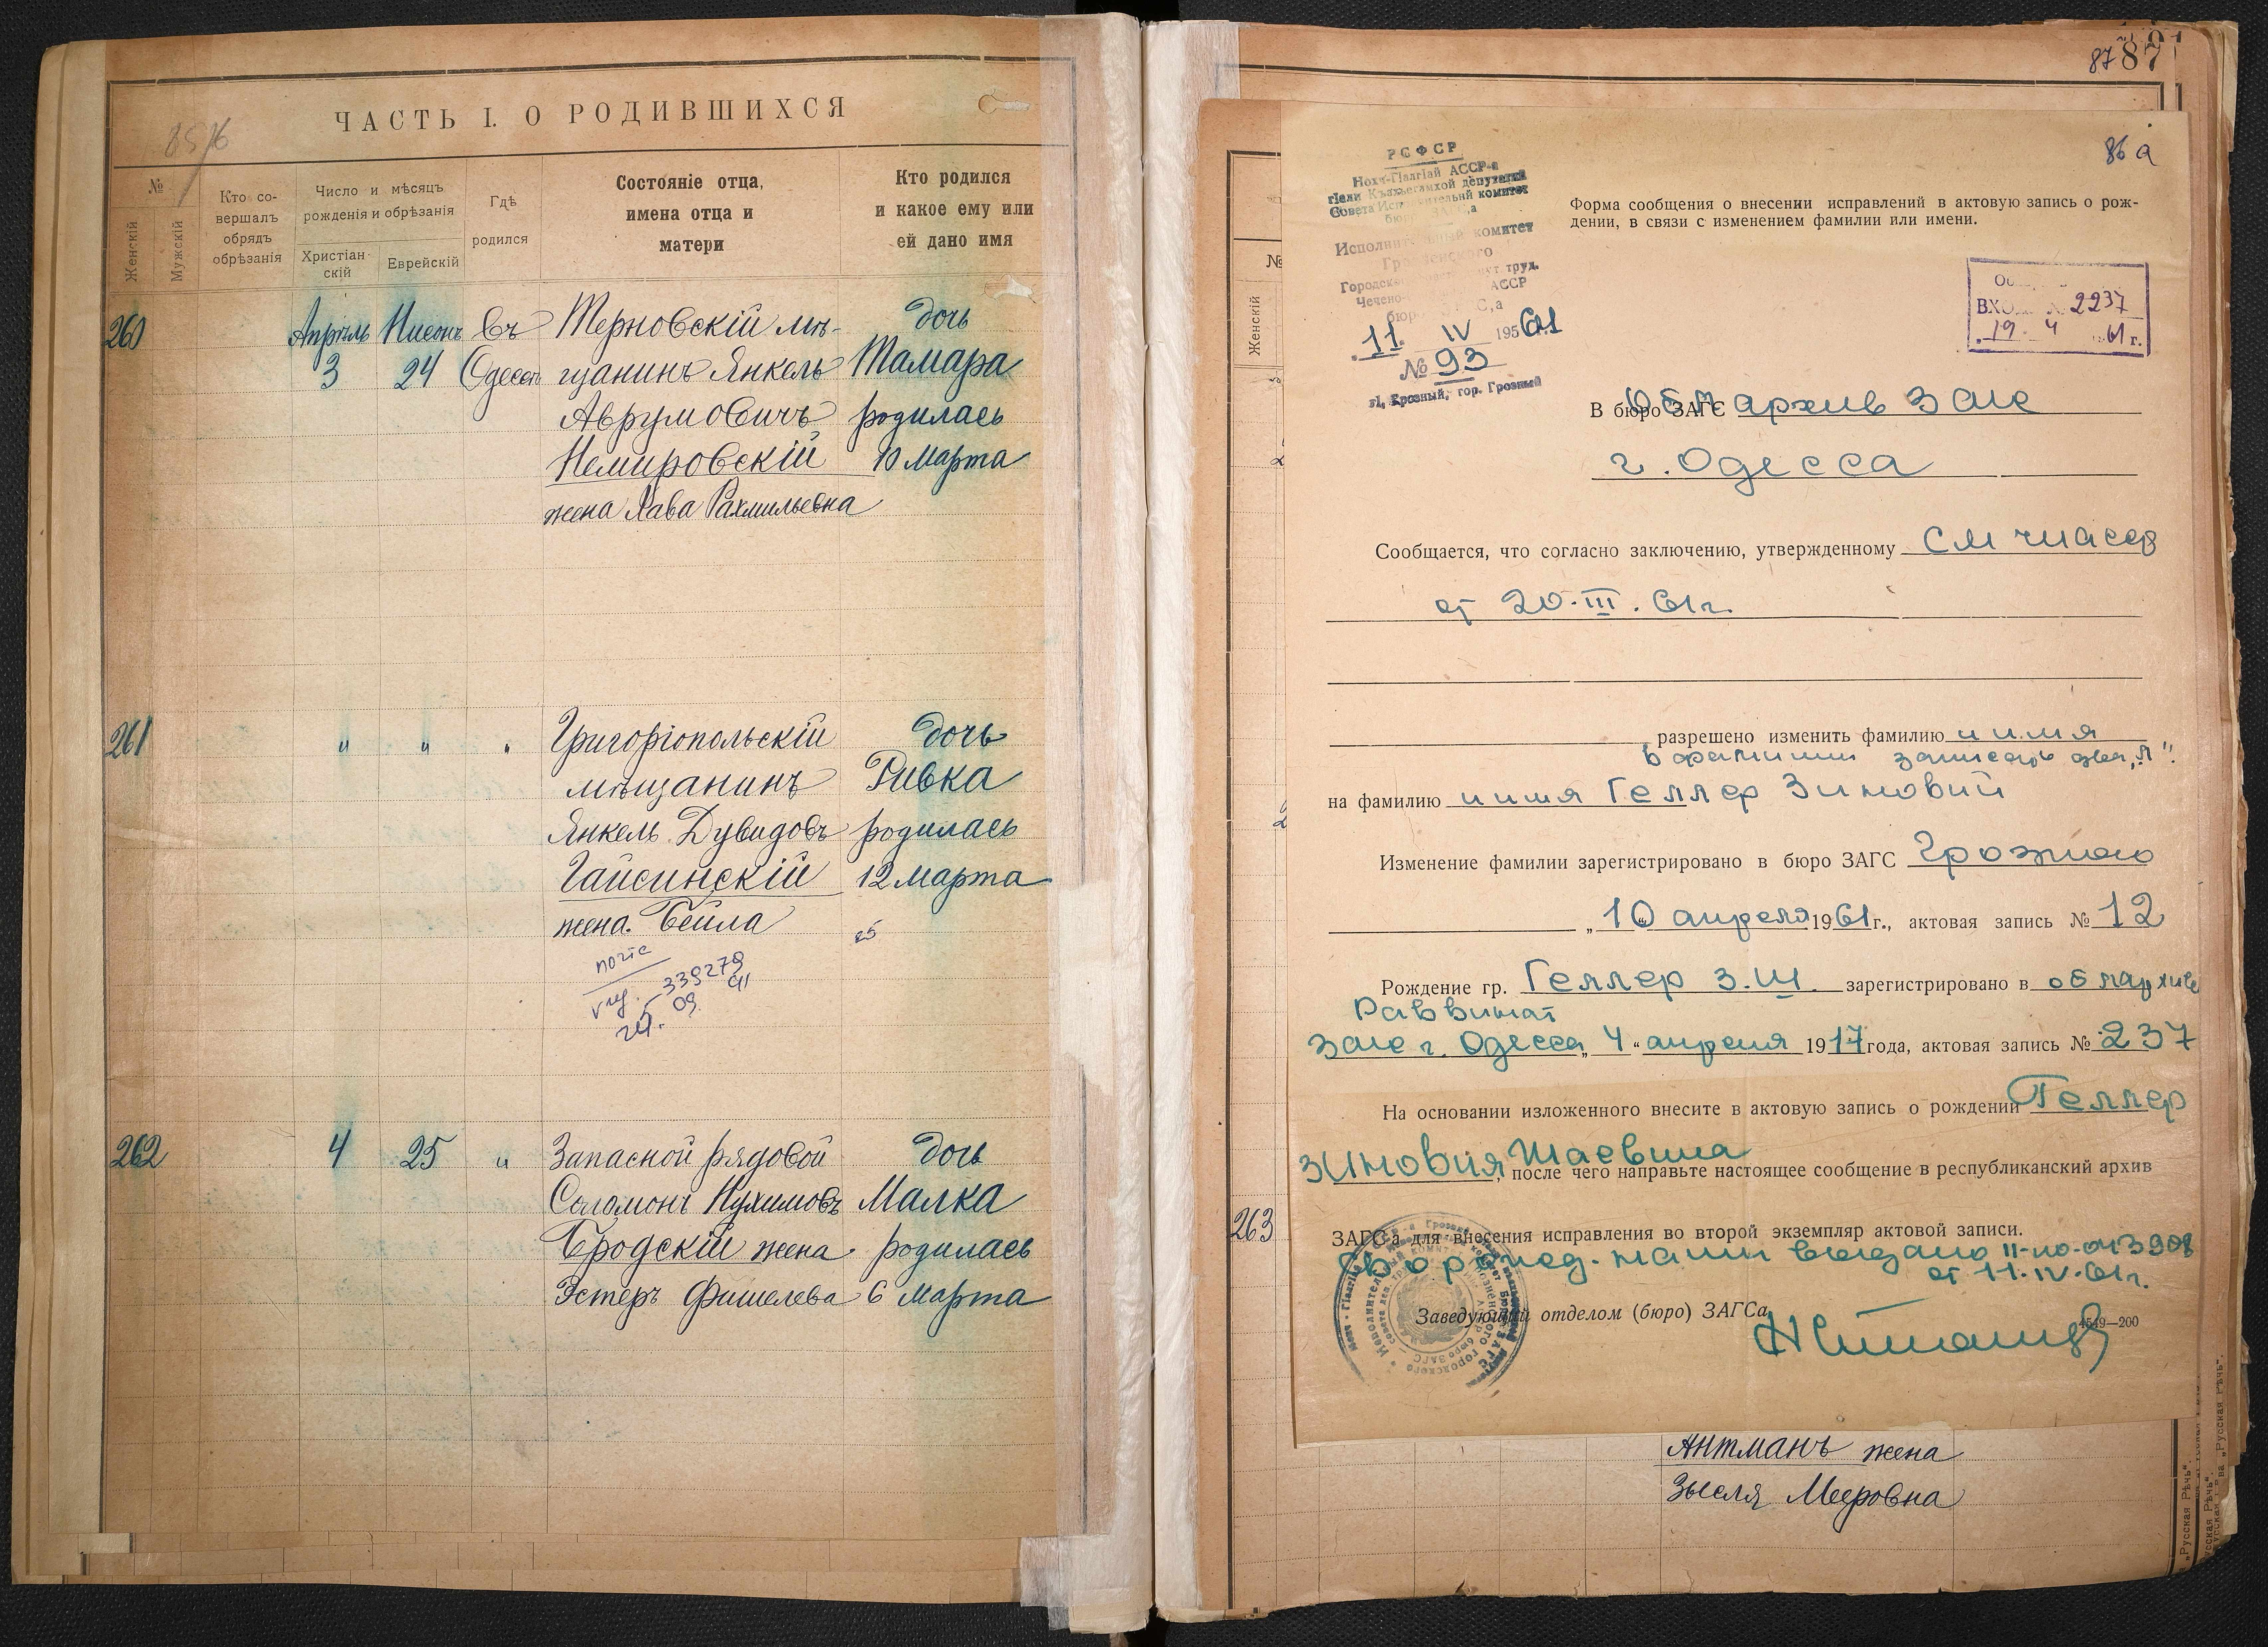 ЧАСТЬ I. О РОДИВШИХСЯ
№
Женскій
Мужскій
Кто со-
вершалъ
обрядъ
обрѣзанія
Число и мѣсяцъ
рожденія и обрѣзанія
Христіан-
скій
Еврейскій
Гдѣ
родился
Состояніе отца,
имена отца и
матери
Кто родился
и какое ему или
ей дано имя
260
Апрѣль
3
Нисонъ
24
Въ
Одессѣ
Терновскій мѣ-
щанинъ Янкель
Аврумовичъ
Немировскій
жена Хава Рахмильевна
дочь
Тамара
родилась
10 Марта
261
"
"
"
Григоріопольскій
мѣщанинъ
Янкель Дувидовъ
Гайсинскій
жена Бейла
дочь
Ривка
родилась
12 Марта
339279
262
4
25
"
Запасной рядовой
Соломонъ Нухимовъ
Бродскій жена
Эстеръ Фишелева
дочь
Малка
родилась
6 Марта
87 87
86 а
РСФСР
Нохч-ГӀалгӀай АССР-а
Исполнительный комитет
Грозненского
АССР
11. IV 1961
№ 93
гор. Грозный
Форма сообщения о внесении исправлений в актовую запись о рож-
дении, в связи с изменением фамилии или имени.
ВХО № 2237
19. 4 61 г.
В бюро ЗАГС Обл архив Загс
г. Одесса
Сообщается, что согласно заключению, утвержденному СМ ЧИАССР
от 20.III.61г.
разрешено изменить фамилию и имя
в фамилии записать два „л“.
на фамилию и имя Геллер Зиновий
Изменение фамилии зарегистрировано в бюро ЗАГС Грозного
„10 апреля 1961г., актовая запись № 12
Рождение гр. Геллер З.Ш. зарегистрировано в облархиве
Раввинат
Загс г. Одесса „4“ апреля 1917 года, актовая запись № 237
На основании изложенного внесите в актовую запись о рождении Геллер
Зиновия Шаевича
, после чего направьте настоящее сообщение в республиканский архив
ЗАГСа для внесения исправления во второй экземпляр актовой записи.
нами выдано II-ЮО-043908
от 11.IV.61г.
Заведующий отделом (бюро) ЗАГСа
4549—200
№
Женскій
263
Антманъ жена
Зысля Мееровна
„Русская Рѣчь“.